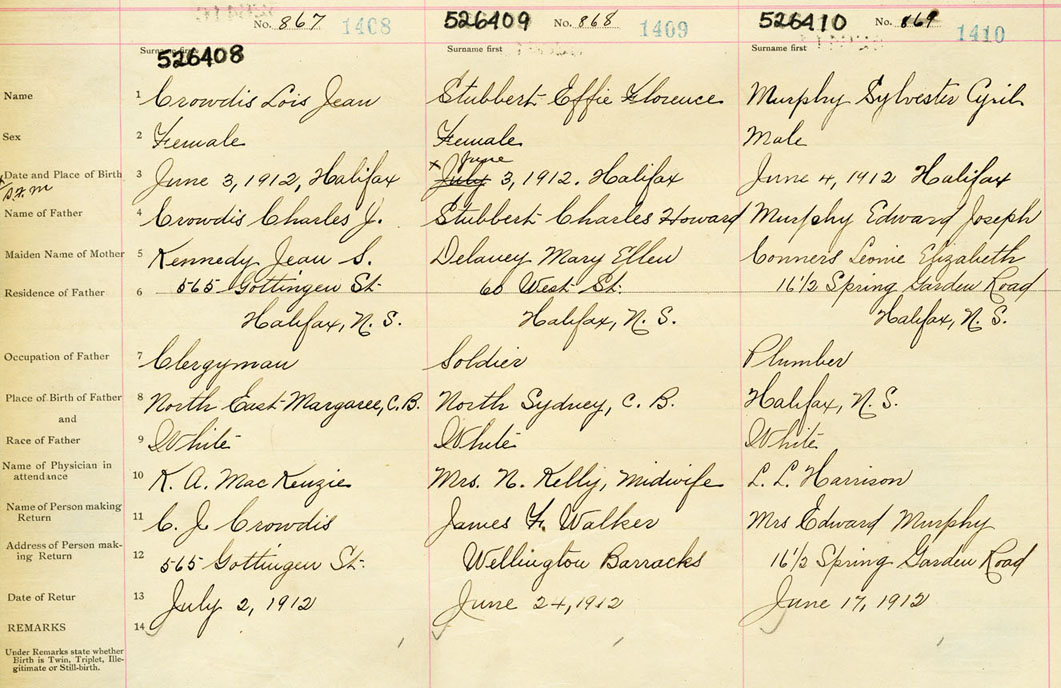 No. 867 1408 526409 No. 868 1409 526410 No. 869 1410
Surname first 526408 Surname first Surname first
Name 1 Crowdis Lois Jean Stubbert Effie Florence Murphy Sylvester Cyril
Sex 2 Female Female Male
June
Date and Place of Birth 3 June 3, 1912, Halifax x July 3, 1912. Halifax June 4, 1912 Halifax
Name of Father 4 Crowdis Charles J. Stubbert Charles Howard Murphy Edward Joseph
Maiden Name of Mother 5 Kennedy Jean S. Delaney Mary Ellen Conners Leonie Elizabeth
Residence of Father 6 565 Gottingen St. 60 West St. 16 1/2 Spring Garden Road
Halifax, N. S. Halifax, N. S. Halifax, N. S.
Occupation of Father 7 Clergyman Soldier Plumber
Place of Birth of Father 8 North East Margaree, C. B. North Sydney, C. B. Halifax, N. S.
and
Race of Father 9 White White White
Name of Physician in
attendance 10 K. A. MacKenzie Mrs. N. Kelly, Midwife L. L. Harrison
Name of Person making
Return 11 C. J. Crowdis James F. Walker Mrs Edward Murphy
Address of Person mak-
ing Return 12 565 Gottingen St. Wellington Barracks 16 1/2 Spring Garden Road
Date of Retur 13 July 2, 1912 June 24, 1912 June 17, 1912
REMARKS 14
Under Remarks state whether
Birth is Twin, Triplet, Ille-
gitimate or Still-birth.